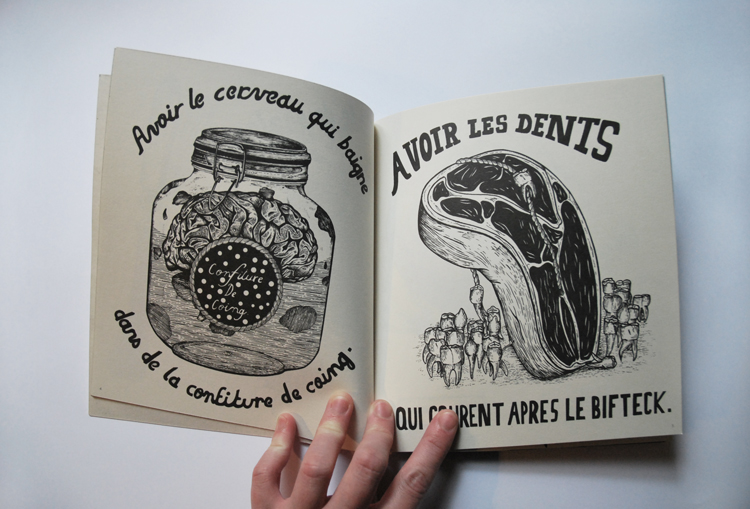 Avoir le cerveau qui baigne
Confiture
De
Coing
dans de la confiture de coing.
AVOIR LES DENTS
QUI COURENT APRES LE BIFTECK.